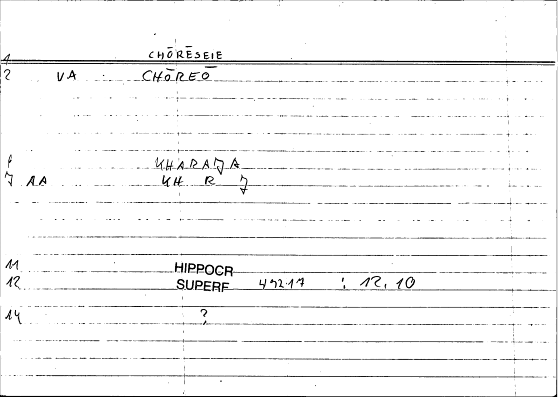 1 CHŌRĒSEIE
2 VA CHŌREŌ
KHARAJA
J AA KH R J
11 HIPPOCR
12 SUPERF 492 17 : 12.10
14 ?